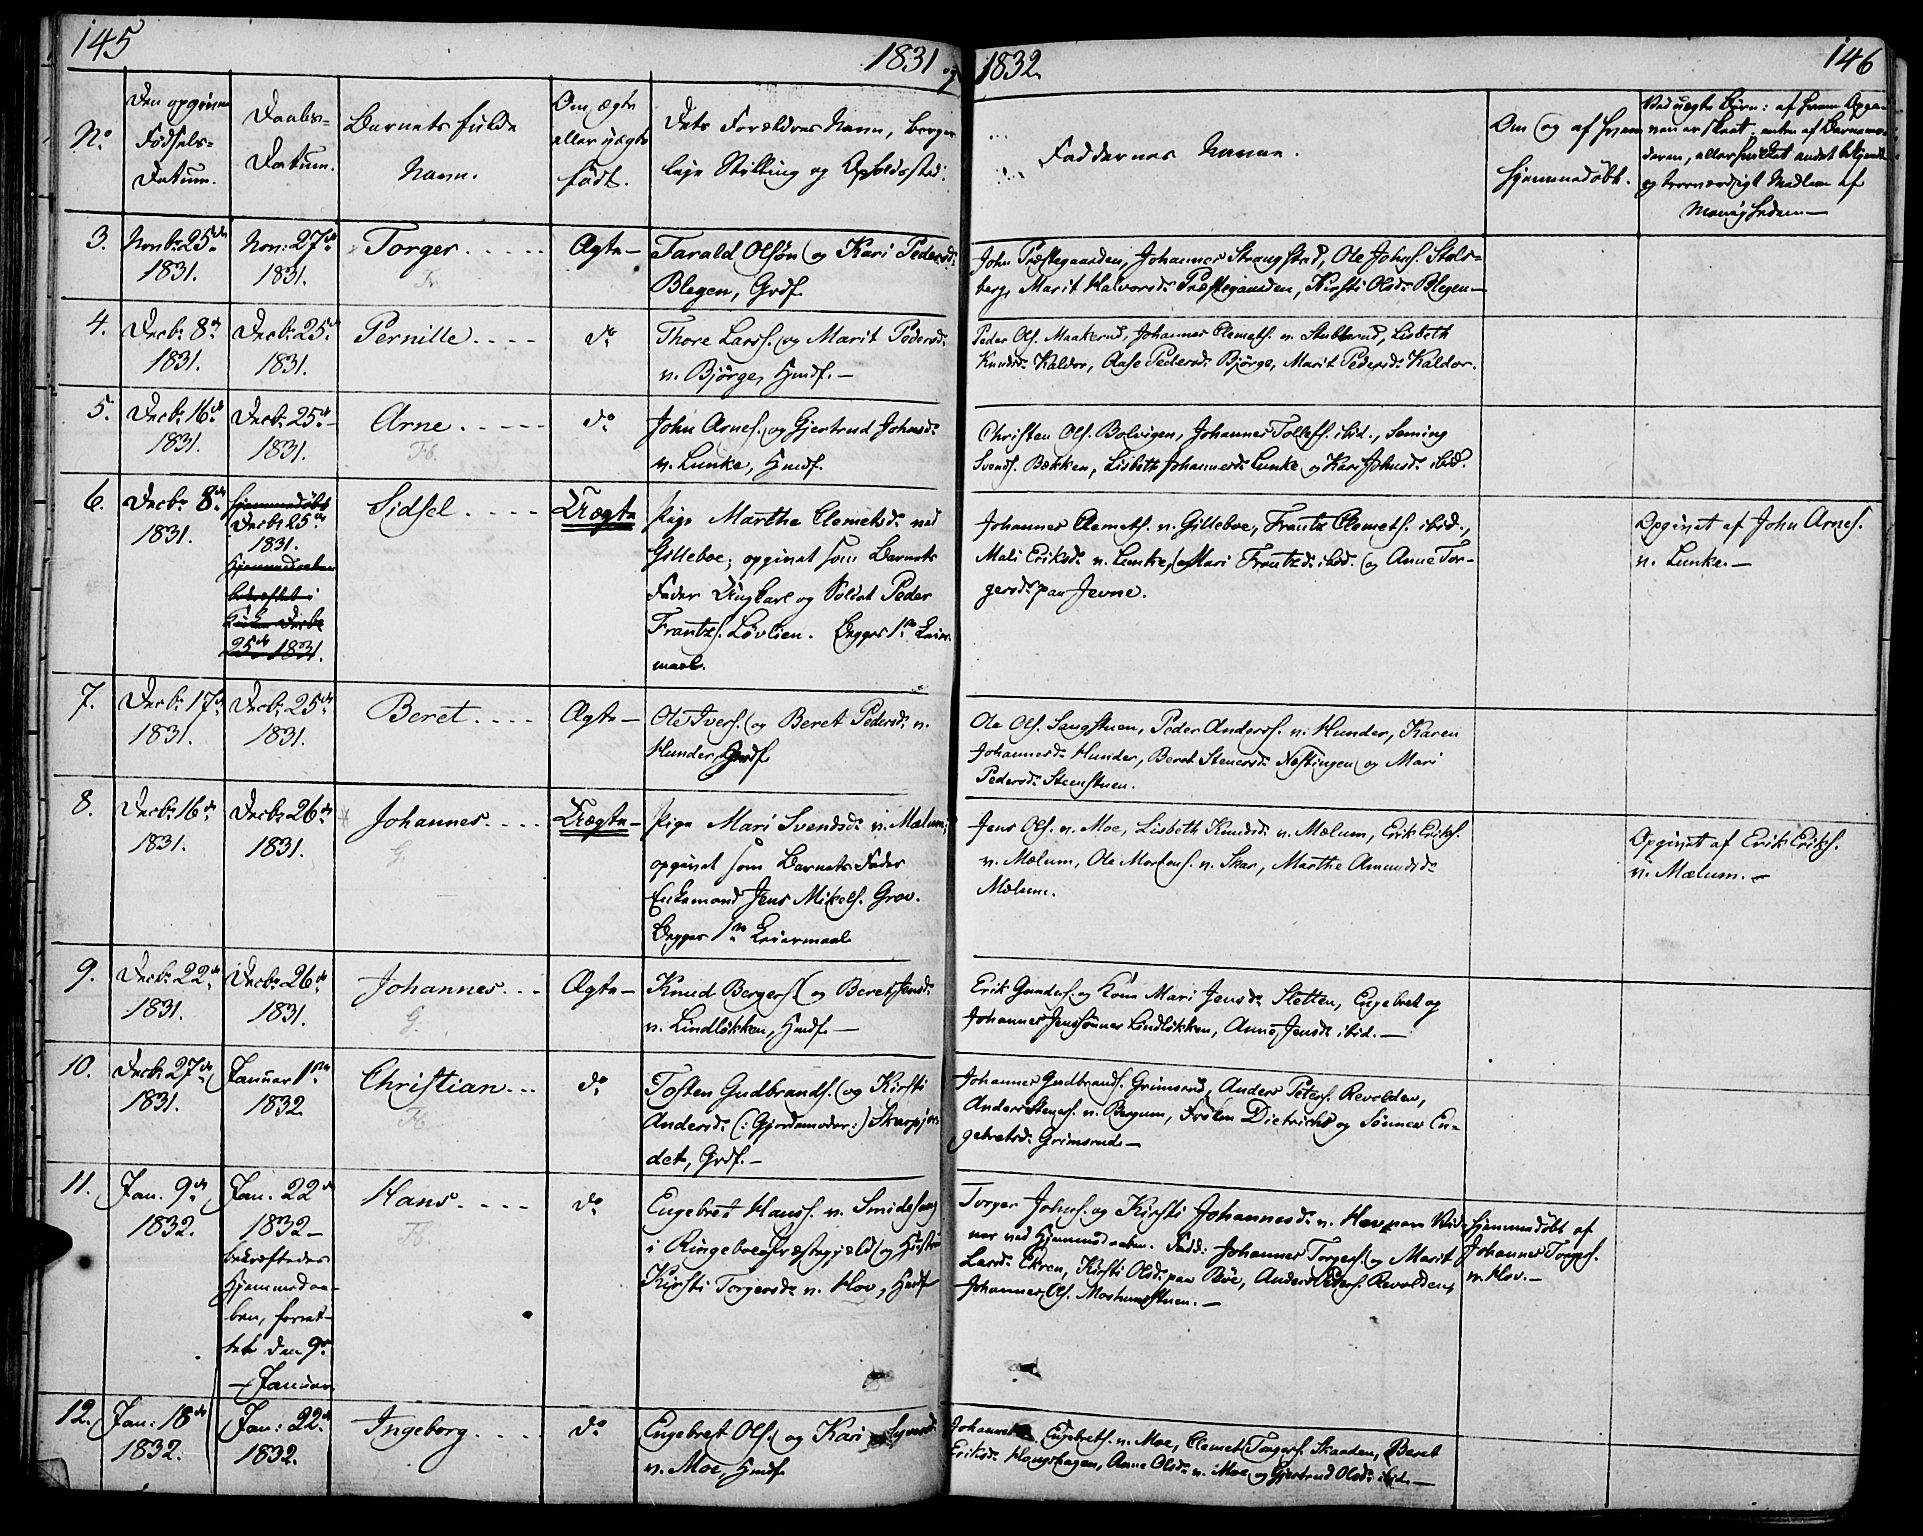 145
1831 og
1832
146
No
Den opgivne
Fødsels-
Datum.
Daabs-
Datum.
Barnets fulde
Navn.
Om ægte
eller uægte
født.
Dets Forældres Navn, borger-
lige Stilling og Opholdssted.
Faddernes Navne.
Om og af hvem
hjemmedøbt.
Ved uægte Børn: af hvem Opga-
ven er skeet, enten af Barnemo-
deren, eller hvilket andet bekjendt
og troværdigt Medlem af
Menigheden —
3.
Novbr 25de
1831.
Nov: 27de
1831.
Torger
Ægte —
Tarald Olsøn og Kari Pedersdr
Blegen, Grdf.
John Præstegaarden, Johannes Strangstad, Ole Johns. Stals-
berg, Marit Halvorsdr Præstegaarden, Kirsti Olsdr Blegen —
4.
Decbr 8de
1831.
Decbr 25de
1831.
Pernille
do
Thore Larss. og Marit Pedersdr
n. Bjørge, Hmdf. —
Peder Ols. Maakerud, Johannes Clemets. n. Stubberud, Lisbeth
Knudsdr Kaldor, Aase Pedersdr Bjørge, Marit Pedersdr Kaldor.
5.
Decbr 16de
1831.
Decbr 25de
1831.
Arne
do
John Arnes. og Gjertrud Johnsdr
n. Lunke, Hmdf.
Christen Ols. Bolvigen, Johannes Tollefs. ibid., Seming
Svends. Bækken, Lisbeth Johannesdr Lunke og Kari Johnsdr ibid.
6.
Decbr 8de
1831.
hjemmedøbt
Decbr 25de
1831.
Hjemmedaaben
bekræftet i
Kirken Decbr
25de 1831.
Sidsel
Uægte
Pige Marthe Clemetsdr ved
Gilleboe; opgivet som Barnets
Fader Ungkarl og Soldat Peder
Frantzs. Løvlien. Begges 1ste Leier-
maal.
Johannes Clemets. n. Gilleboe, Frantz Clemets. ibid.,
Mali Eriksdr n. Lunke, Mari Frantzdr ibid. og Anne Tor-
gersdr paa Jevne.
Opgivet af John Arnes.
n. Lunke. —
7.
Decbr 17de
1831.
Decbr 25de
1831.
Beret
Ægte —
Ole Ivers. og Beret Pedersdr n.
Hunder, Grdf
Ole Ols. Langstuen, Peder Anderss. n. Hunder, Karen
Johannesdr Hunder, Beret Stenersdr Nestingen og Mari
Pedersdr Steenstuen.
8.
Decbr 16de
1831.
Decbr 26de
1831.
Johannes
G.
Uægte —
Pige Mari Svendsdr n. Mælum;
opgivet som Barnets Fader
Enkemand Jens Mikels. Grov.
Begges 1ste Leiermaal
Jens Ols. n. Moe, Lisbeth Knudsdr n. Mælum, Erik Eriks.
n. Mælum, Ole Mortens. n. Skar, Marthe Amundsdr
Mælum.
Opgivet af Erik Eriks.
n. Mælum. —
9.
Decbr 22de
1831.
Decbr 26de
1831.
Johannes
G.
Ægte —
Knud Bergers. og Beret Jensdr
n. Lindløkken, Hmdf —
Erik Gunders. og Kone Mari Jensdr Sletten, Engebret og
Johannes Jenssønner Lindløkken, Anne Jensdr ibid. —
10.
Decbr 27de
1831.
Januar 1ste
1832
Christian
do
Tosten Gudbrands. og Kirsti
Andersdr (: Gjordemoder :) Skurgjor-
det, Grdf. —
Johannes Gudbrands. Grimsrud, Anders Peters. Revolden,
Anders Steners. n. Bergum, Frøken Dietrichs og Sønnev En-
gebretsdr Grimsrud. —
11.
Jan. 9de
1832.
Jan. 22de
1832 —
bekræftedes
Hjemmedaa-
ben, forret-
tet den 9de
— Januar
Hans
do
Engebret Hanss. n. Smidshaug
i Ringeboe Præstegjeld og Hustru
Kirsti Torgersdr n. Hov, Hmdf
Torger Johns. og Kirsti Johannesdr n. Hov vare Vid-
ner ved Hjemmedaaben. Fadd: Johannes Torgers. og Marit
Larsdr Ekren, Kirsti Olsdr paa Bøe, Anders Peters. Revolden,
Johannes Ols. Moshuusstuen. —
Hjemmedøbt af
Johannes Torgers.
n. Hov. —
12.
Jan: 18de
1832.
Jan: 22de
1832.
Ingeborg
do
Engebret Ols. og Kari
n. Moe, Hmdf
Johannes Engebrets. n. Moe, Clemet Torgers. Skaaden, Beret
Eriksdr Haugshagen, Anne Olsdr n. Moe og Gjertrud Olsdr ibid. —